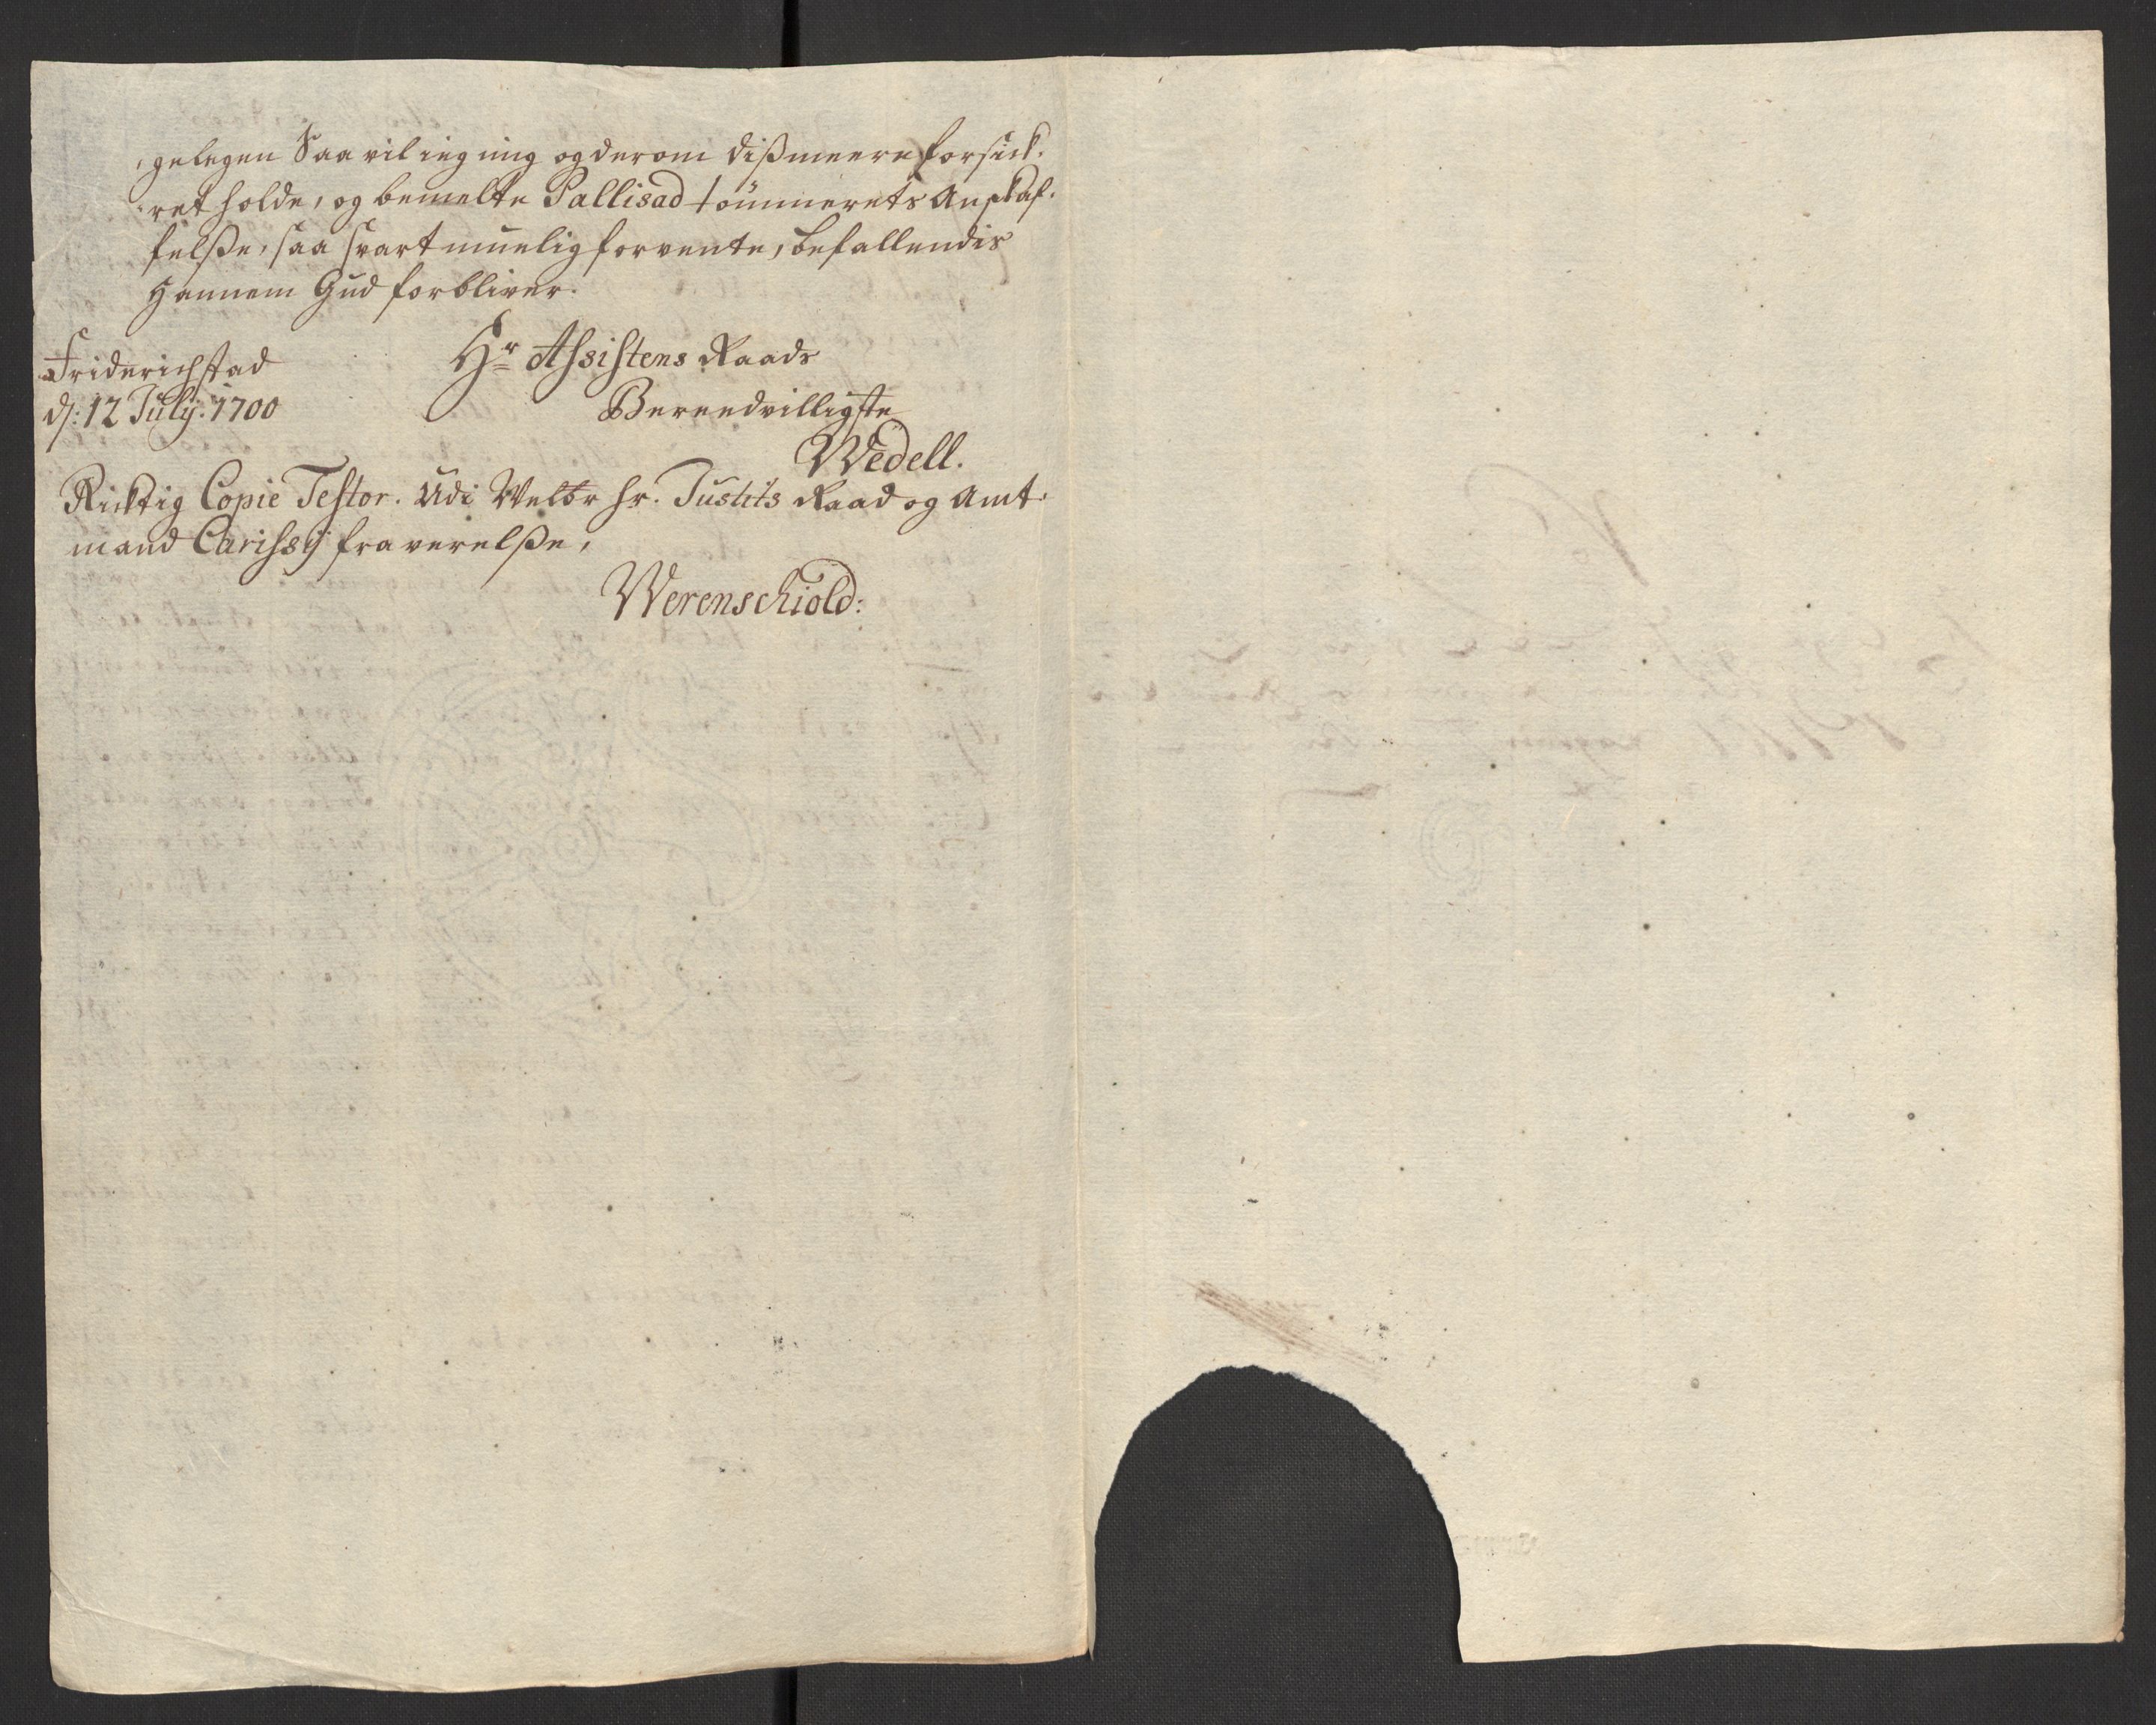 gelegen Saa vil ieg mig og derom dißmeere forsick¬
ret holde, og bemelte Pallisad tömmerets Anskaf¬
felße, saa snart muelig forvente, befallendis
Hannem Gud forbliver.
Friderichstad
d: 12 July: 1700
Hr Assistens Raads
Bereedvilligste
Wedell.
Ricktig Copie Testor. Udi Welbr hr. Justits Raad og Amt¬
mand Carissij fraverelße,
Werenschiold: